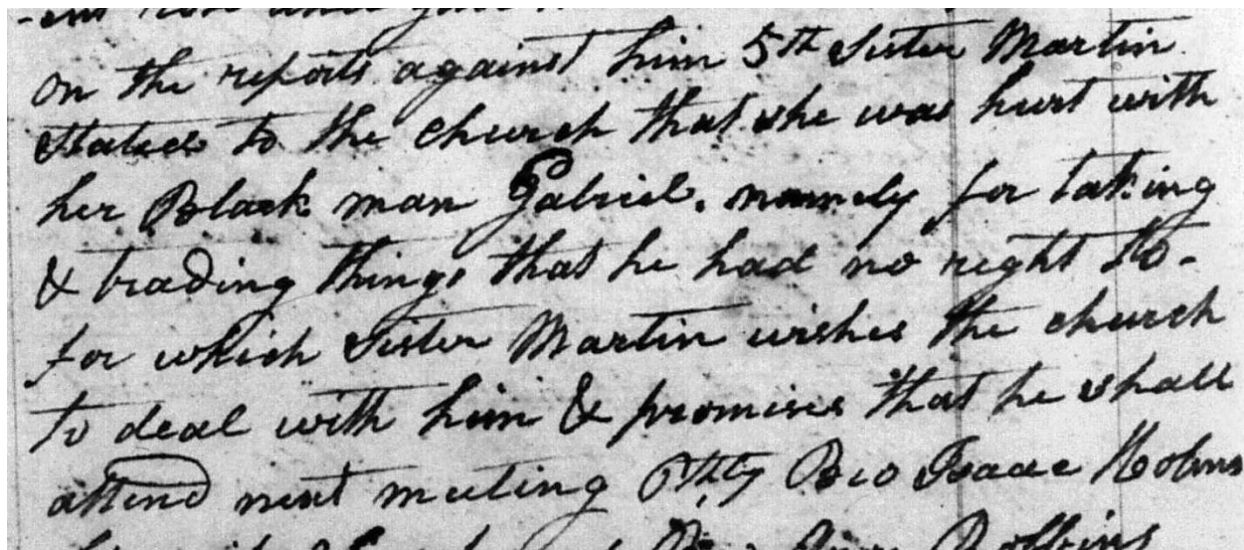 on the reports against him 5th Sister Martin
States to the church that she was hurt with
her Black man Gabriel. namely for taking
& trading things that he had no right to-
for which Sister Martin wishes the church
to deal with him & promises that he shall
attend next meeting Bro Isaac
Robbins